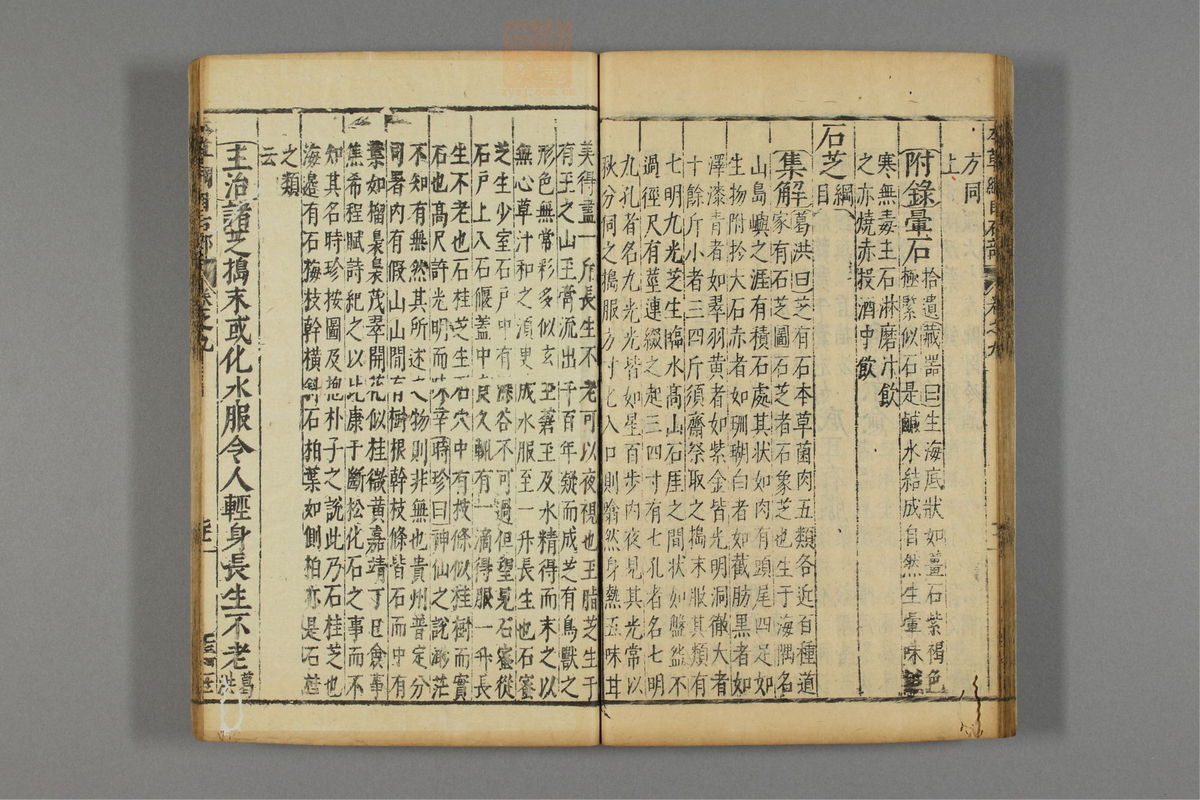 本草綱目石部 卷之九
方同
上
附錄暈石拾遺藏器曰生海底狀如薑石紫褐色
極緊似石是鹹水結成自然生暈味
寒無毒主石淋磨汁飲
之亦燒赤投酒中飲
石芝綱
目
集解葛洪曰芝有石本草菌肉五類各近百種道
家有石芝圖石芝者石象芝也生于海隅名
山島嶼之涯有積石處其狀如肉有頭尾四足如
生物附於大石赤者如珊瑚白者如截肪黑者如
澤漆青者如翠羽黄者如紫金皆光明洞徹大者
十餘斤小者三四斤須齋祭取之搗末服其類有
七明九光芝生臨水高山石厓之間狀如盤盌不
過徑尺有莖連綴之起三四寸有七孔者名七明
九孔者名九光光皆如星百步内夜見其光常以
秋分伺之搗服方寸匕入口則翕然身熱五味甘
美得盡一斤長生不老可以夜視也玉脂芝生于
有玉之山玉膏流出千百年凝而成芝有鳥獸之
形色無常彩多似玄玉蒼玉及水精得而末之以
無心草汁和之須臾成水服至一升長生也石蜜
芝生少室石戶中有深谷不可過但望見石蜜從
石戶上入石偃蓋中良久輒有一滴得服一升長
生不老也石桂芝生石穴中有枝條似桂樹而實
石也高尺許光明而味辛時珍曰神仙之說渺茫
不知有無然其所述之物則非無也貴州普定分
司署内有假山山間有樹根幹枝條皆石而中有
葉如榴裊裊茂翠開花似桂微黄嘉靖丁巳僉事
焦希程賦詩紀之以比康干斷松化石之事而不
知其名時珍按圖及抱朴子之說此乃石桂芝也
海邊有石梅枝幹橫斜石柏葉如側柏亦是石桂
之類
云
主治諸芝搗末或化水服令人輕身長生不老葛
洪
卷之九